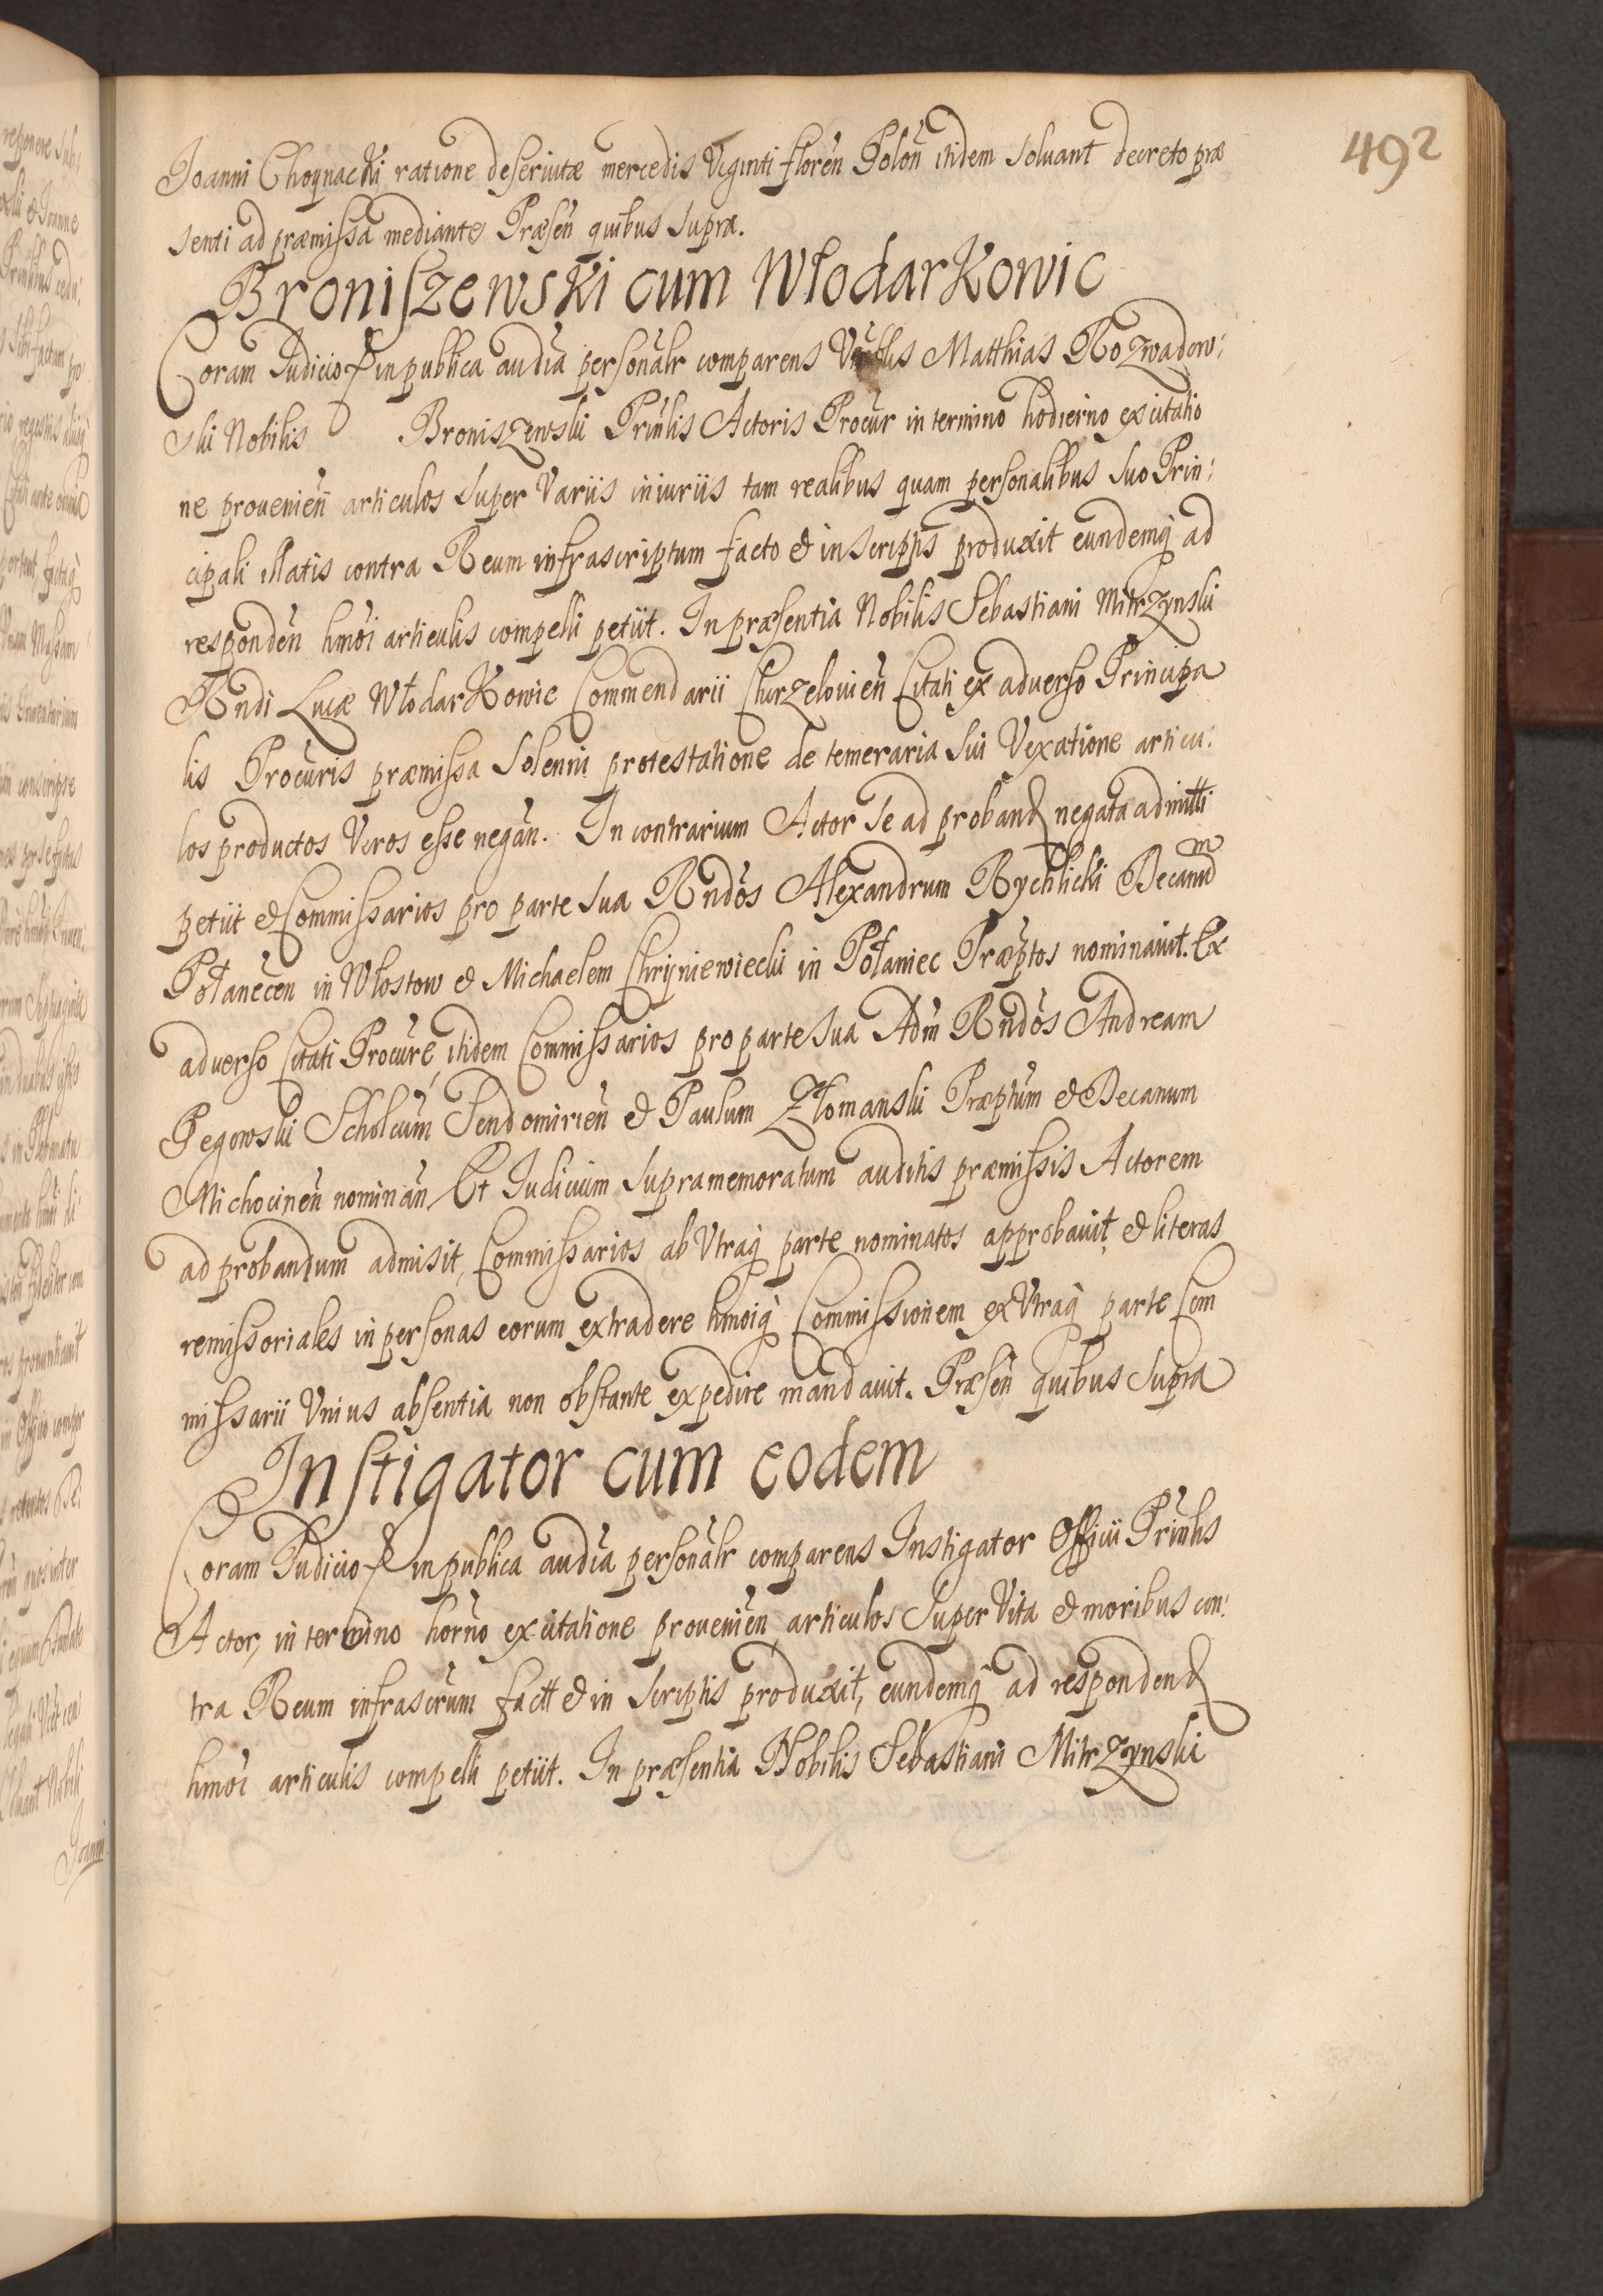 492
Joanni Choynacki ratione deservitæ mercedis Viginti floren̄ Polon̄ itidem solvant decreto præ
senti ad præmissa mediante Præsen̄ quibus supra.
Broniszewski cum Włodarkowic
Coram Judicio in publica audīa personālr comparens Matthias Rozwadow:
ski Nobilis Broniszewski Prin̄lis Actoris Procūr in termino hodierno ex citatio
ne provenien̄ articulos super Variis injuriis tam realibus quam personalibus suo Prin:
cipali illatis contra Reum infrascriptum facto & in scriptis produxit eundemq̀ ad
responden̄ hm̄oi articulis compelli petiit. In præsentia Nobilis Sebastiani Mitrzynski
Rn̄di Lucæ Włodarkowic Commendarii Citati ex adverso Principa
lis Procūris præmissa solenni protestatione de temeraria sui Vexatione articu:
los productos Veros esse negān. In contrarium Actor se ad proband negata admitti
petiit & Commissarios pro parte sua Rn̄dos Alexandrum Rychlicki Decanum
Połanecen̄ in Włostow & Michaelem in Połaniec Præp̄tos nominavit. Ex
adverso Citati Procūre, itidem Commissarios pro parte sua Adm̄ Rn̄dos Andream
Pegowski Schol̄cum Sendomirien̄ & Paulum Złomanski Præp̄tum & Decanum
Michocinen̄ nominān. Et Judicium supramemoratum auditis præmissis Actorem
ad probandum admisit, Commissarios ab Utraq̀ parte nominatos approbavit, & literas
remissoriales in personas eorum extradere hm̄oiq̀ Commissionem ex Utraq̀ parte Com
missarii Unius absentia non obstante expedire mandavit. Præsen̄ quibus supra
Instigator cum eodem
Coram Judicio in publica audīa personālr comparens Instigator Officii Prin̄lis
Actor, in termino hor̄no ex citatione provenien̄ articulos super Vita & moribus con:
tra Reum infrascr̄um fact & in scriptis produxit, eundemq̀ ad respondend
hm̄oi articulis compelli petiit. In præsentia Nobilis Sebastiani Mitrzynski